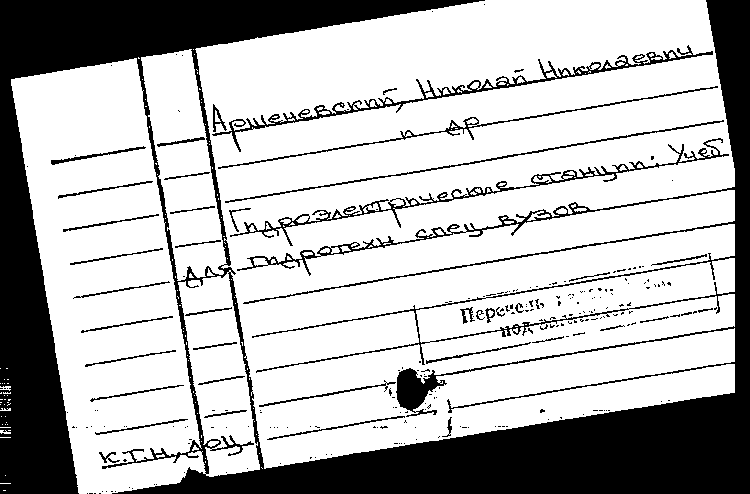 Аршеневский, Николай Николаевич
и др
Гидроэлектрические станции: Учеб
для гидротехн спец вузов
Перечень
под
к.т.н, доц